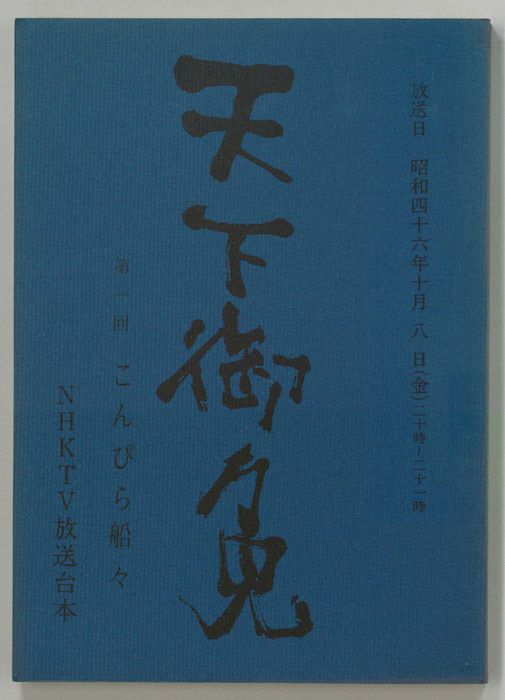 放送日　昭和四十六年十月八日(金)二十時~二十一時
天下御免
第一回　こんぴら船々
NHKTV放送台本